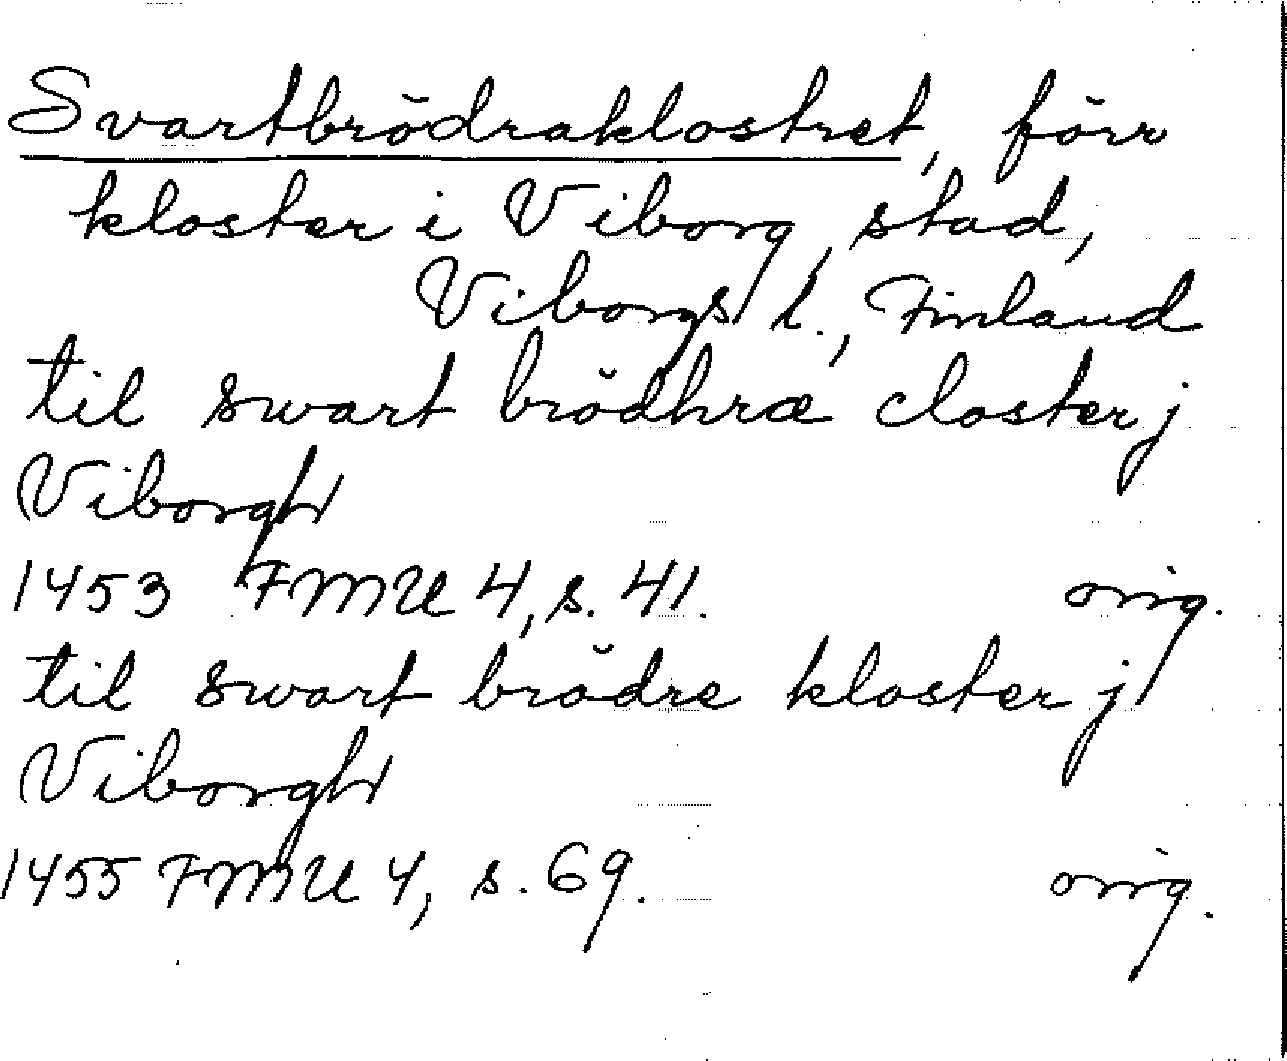 Svartbrödraklostret, förr
kloster i Viborg, stad,
Viborgs l., Finland
til swart brödhræ closter j
Viborgh
1453 FMU 4, s. 41. orig.
til swart brödre kloster j
Viborgh
1455 FMU 4, s. 69. orig.